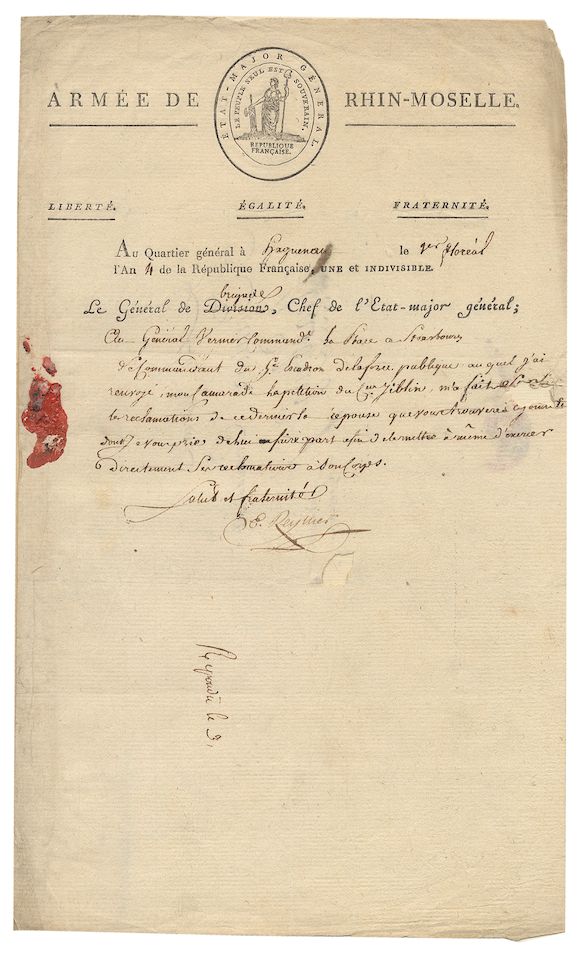 ÉTAT-MAJOR GÉNÉRAL.
LE PEUPLE SEUL EST SOUVERAIN.
REPUBLIQUE
FRANÇAISE.
ARMÉE DE RHIN-MOSELLE.
LIBERTÉ. ÉGALITÉ. FRATERNITÉ.
Au Quartier général à haguenau le 1er floréal
l'An 4 de la République Française, UNE et INDIVISIBLE.
brigade
Le Général de Division, Chef de l'Etat-major général;
Au Général Commandt la Place a Strasbourg
Le Commandant du 5e Escadron de la force publique auquel j'ai
renvoyé, mon Camarade la petition du Cen Jiblin, m'a fait
les reclamations de ce dernier la reponse que vous trouverez cy jointe
dont je vous prie de lui faire part afin de le mettre à même d'
directement Ses reclamations à Son Corps.
Salut et fraternité
E. Reynier
Repondu le 3